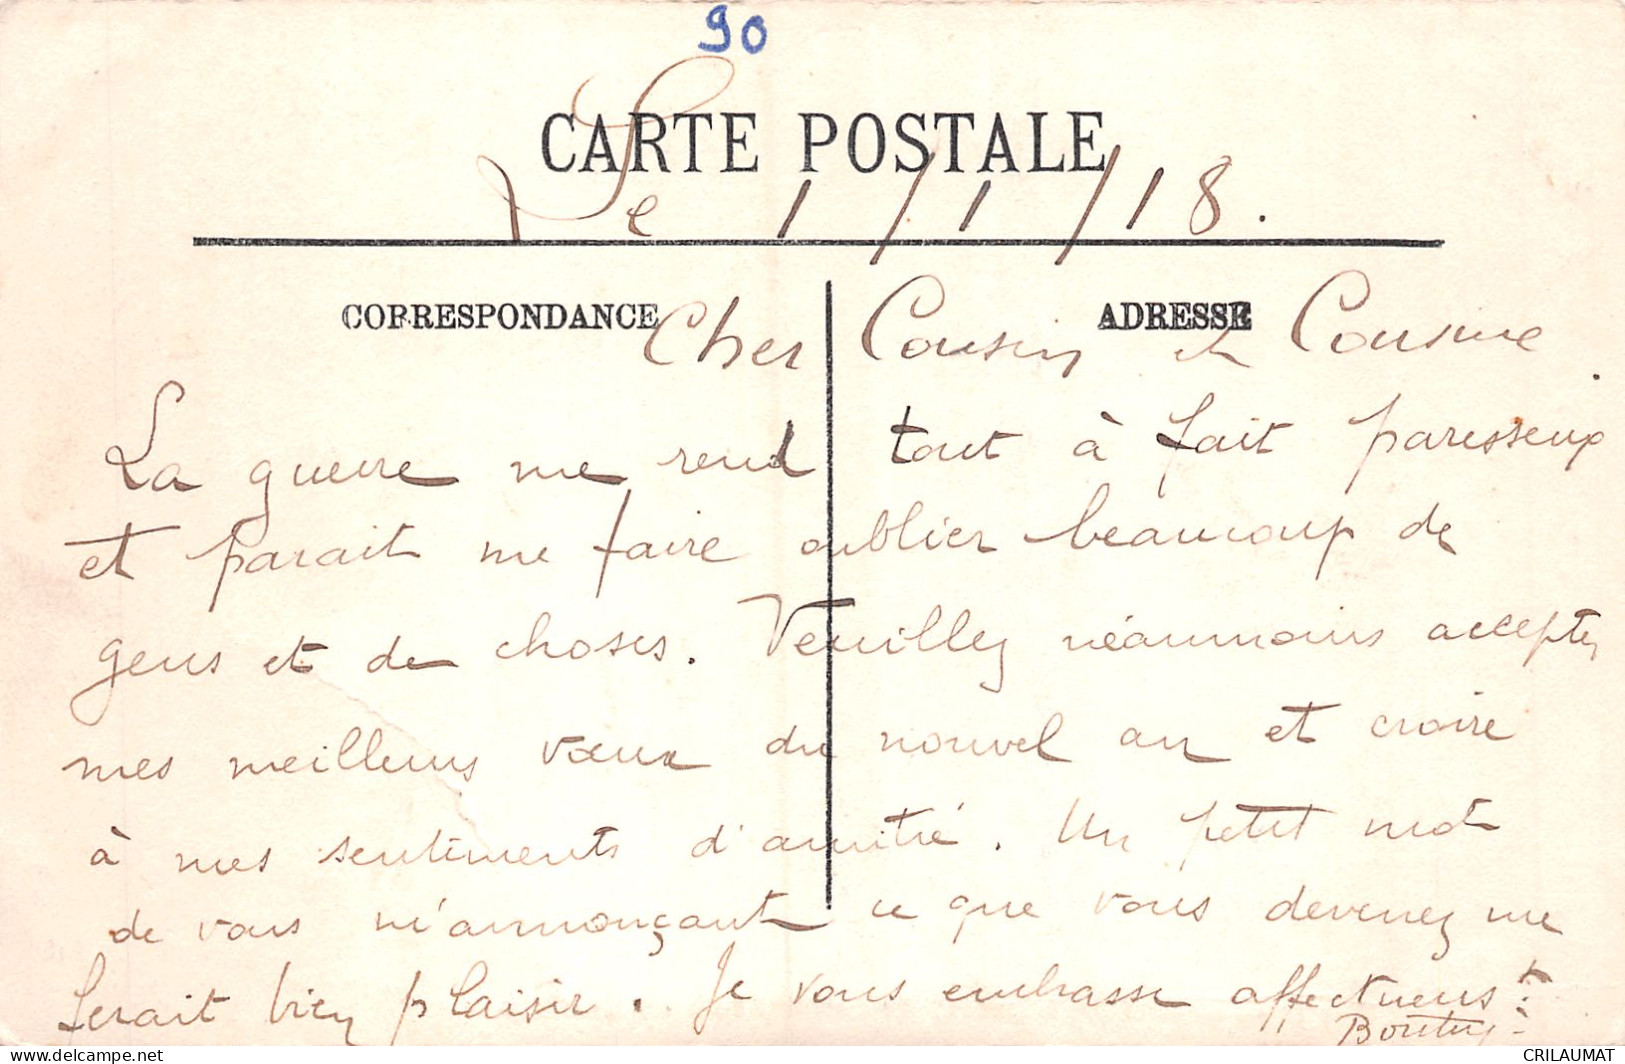 90
CARTE POSTALE
Le 1/1/18.
CORRESPONDANCE
ADRESSE
Cher Cousin et Cousine
La guerre me rend tout à fait paresseux
et parait me faire oublier beaucoup de
gens et de choses. Veuillez néanmoins accepter
mes meilleurs vœux du nouvel an et croire
à mes sentiments d'amitié. Un petit mot
de vous m'annonçant ce que vous devenez me
serait bien plaisir. Je vous embrasse affectueus.t
CRILAUMAT